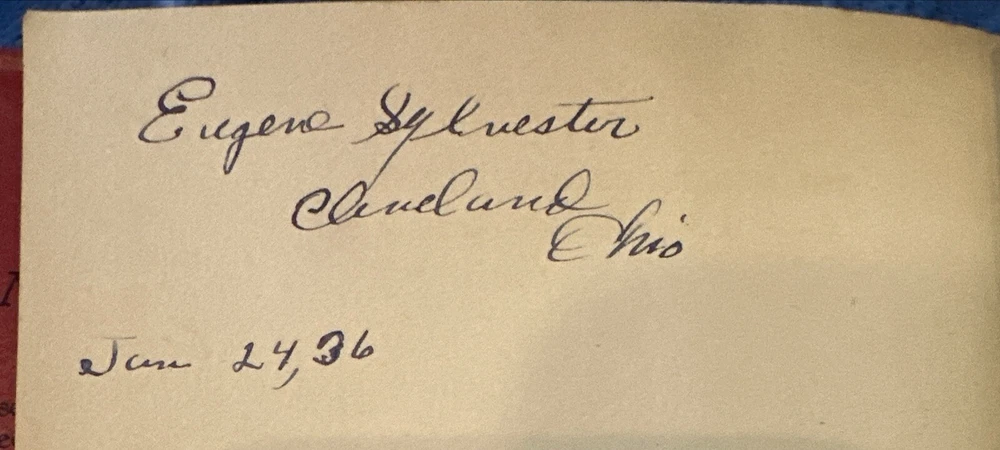 Eugene Sylvester
Cleveland
Ohio
Jan 24, 36